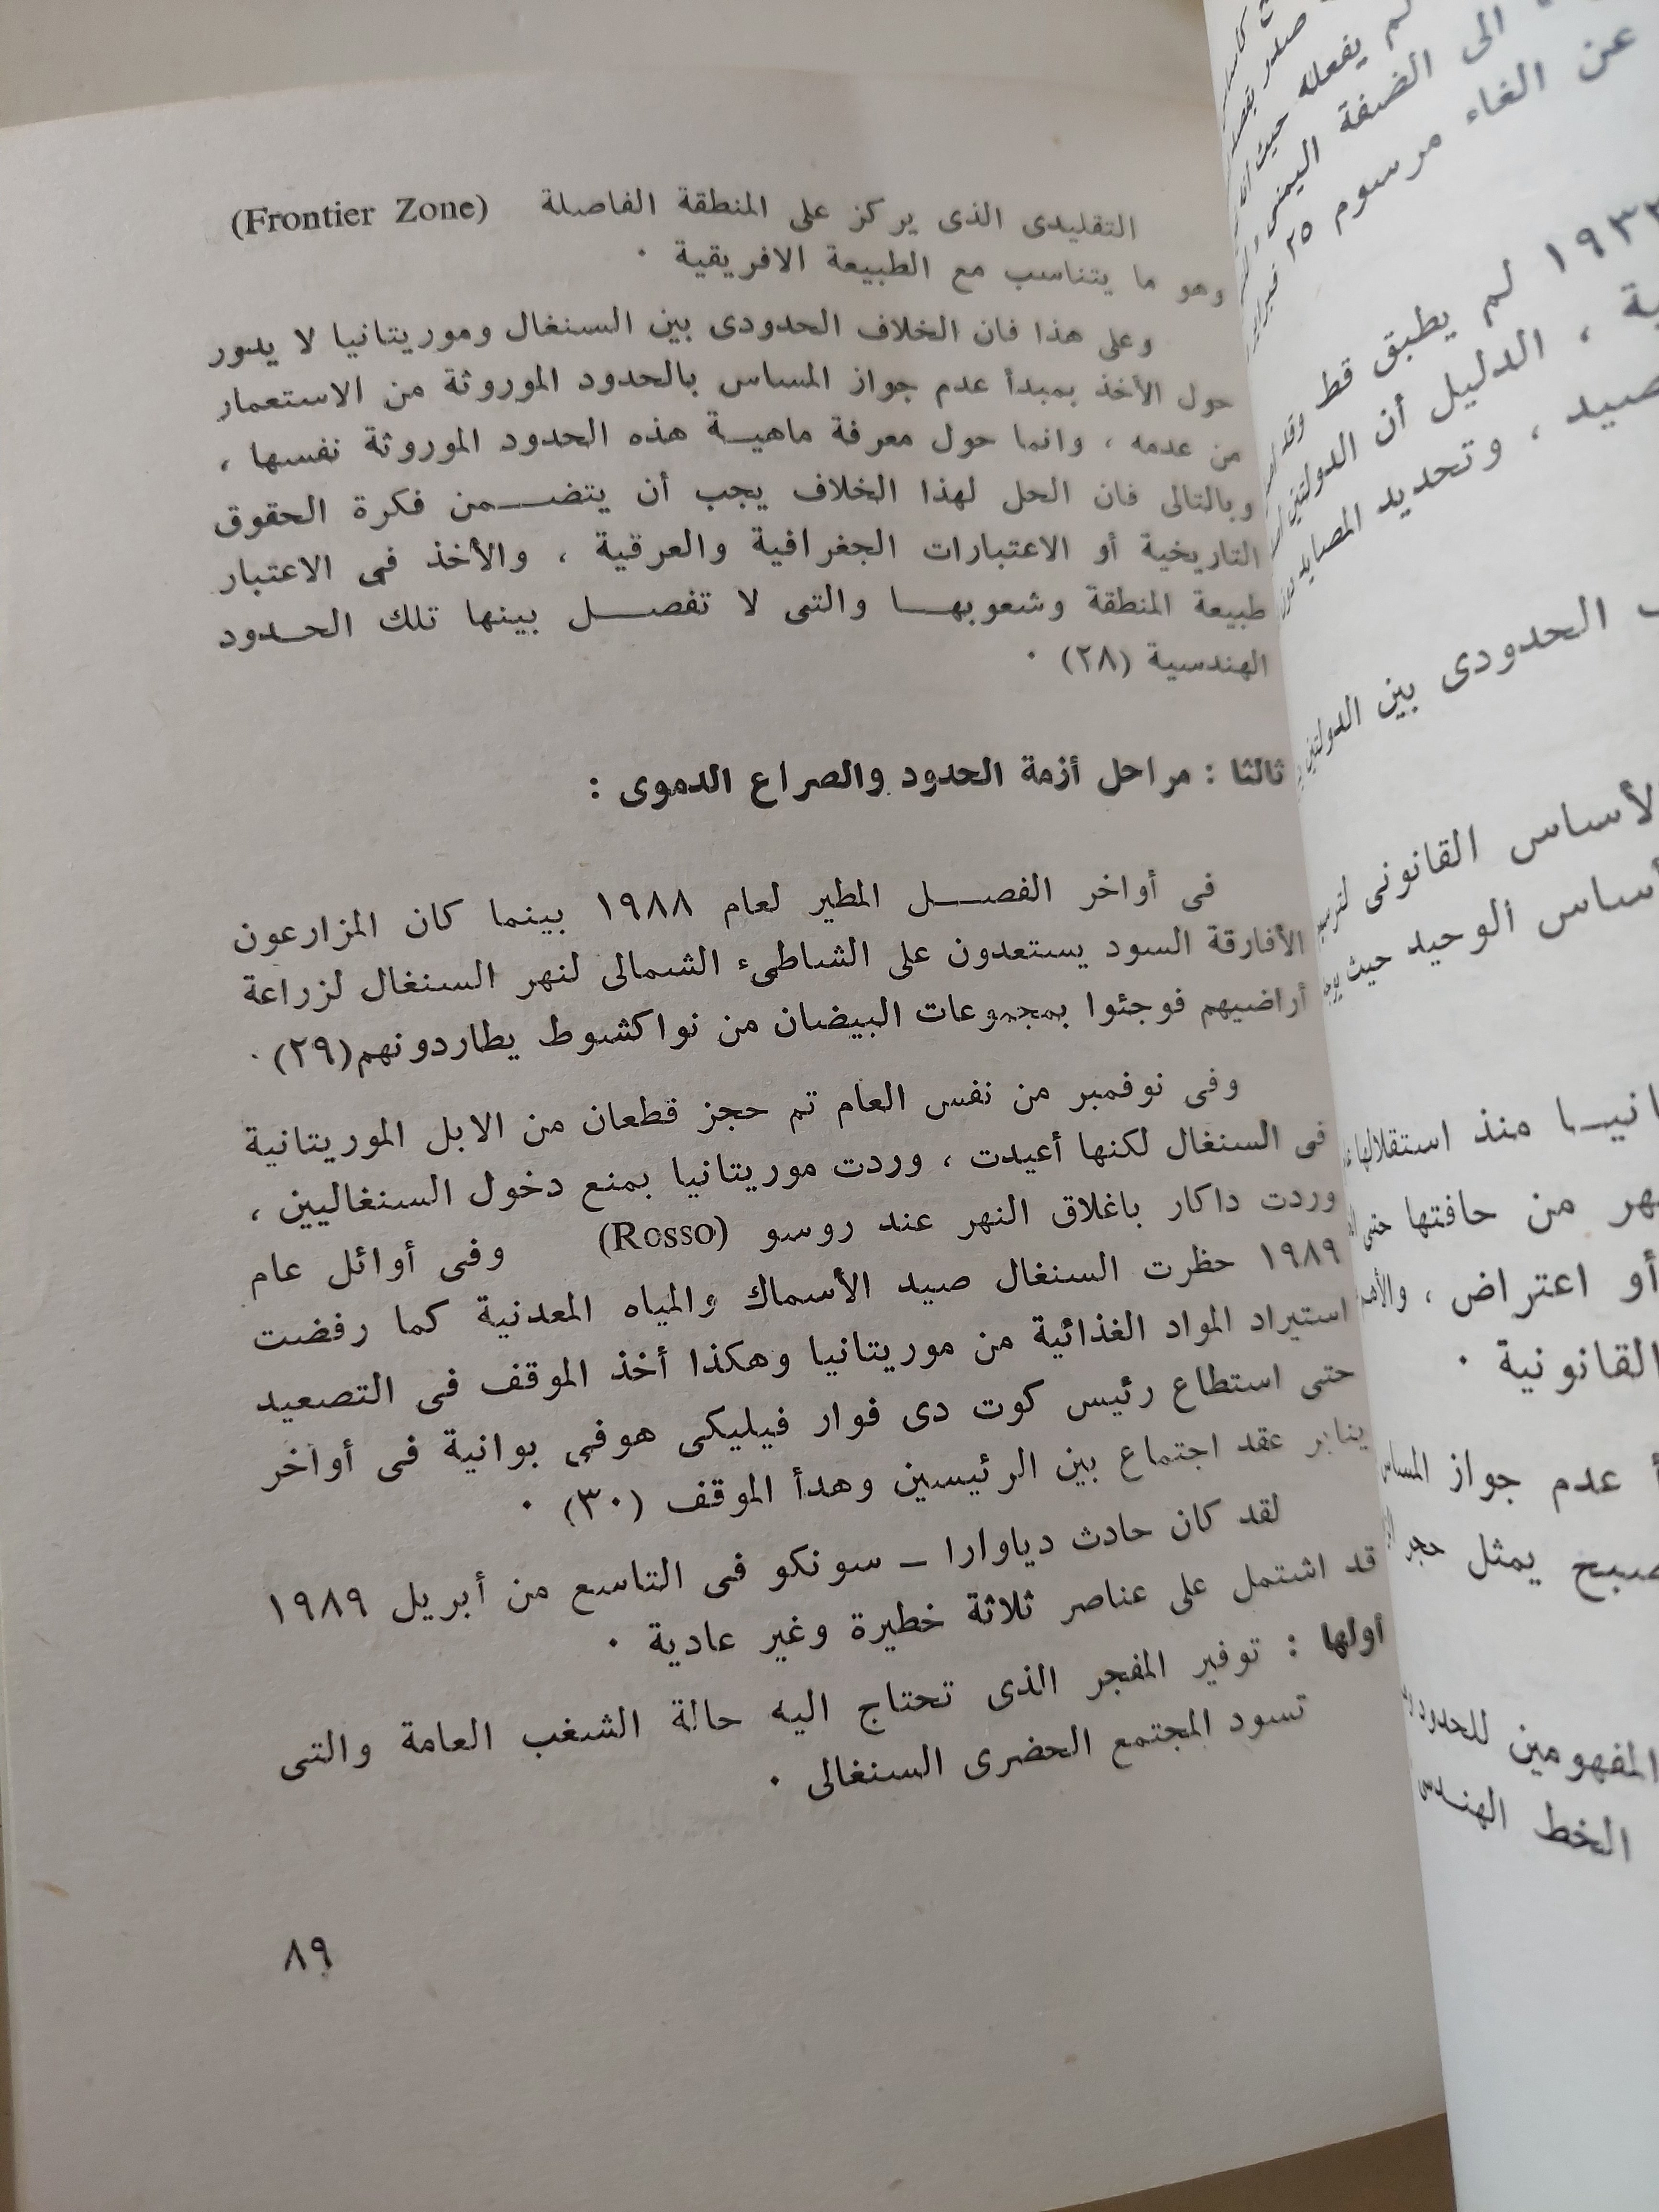 التقليدى الذى يركز على المنطقة الفاصلة (Frontier Zone)
وهو ما يتناسب مع الطبيعة الافريقية .
وعلى هذا فان الخلاف الحدودى بين السنغال وموريتانيا لا يدور
حول الأخذ بمبدأ عدم جواز المساس بالحدود الموروثة من الاستعمار
من عدمه ، وانما حول معرفة ماهية هذه الحدود الموروثة نفسها ،
وبالتالى فان الحل لهذا الخلاف يجب أن يتضمن فكرة الحقوق
التاريخية أو الاعتبارات الجغرافية والعرقية ، والأخذ فى الاعتبار
طبيعة المنطقة وشعوبها والتى لا تفصل بينها تلك الحدود
الهندسية (٢٨) .
ثالثا : مراحل أزمة الحدود والصراع الدموى :
فى أواخر الفصل المطير لعام ١٩٨٨ بينما كان المزارعون
الأفارقة السود يستعدون على الشاطىء الشمالى لنهر السنغال لزراعة
أراضيهم فوجئوا بمجموعات البيضان من نواكشوط يطاردونهم(٢٩) .
وفى نوفمبر من نفس العام تم حجز قطعان من الابل الموريتانية
فى السنغال لكنها أعيدت ، وردت موريتانيا بمنع دخول السنغاليين ،
وردت داكار باغلاق النهر عند روسو (Rosso) وفى أوائل عام
١٩٨٩ حظرت السنغال صيد الأسماك والمياه المعدنية كما رفضت
استيراد المواد الغذائية من موريتانيا وهكذا أخذ الموقف فى التصعيد
حتى استطاع رئيس كوت دى فوار فيليكى هوفى بوانية فى أواخر
يناير عقد اجتماع بين الرئيسين وهدأ الموقف (٣٠) .
لقد كان حادث دياوارا ــ سونكو فى التاسع من أبريل ١٩٨٩
قد اشتمل على عناصر ثلاثة خطيرة وغير عادية .
أولها : توفير المفجر الذى تحتاج اليه حالة الشغب العامة والتى
تسود المجتمع الحضرى السنغالى .
٨٩
لم يفعله حيث
الى الضفة اليمنى
عن الغاء مرسوم ٢٥
لم يطبق قط
، الدليل أن الدولتين
، وتحديد المصايد
الحدودى بين الدولتين
الأساس القانونى
الوحيد حيث
منذ استقلالها
من حافتها حتى
أو اعتراض ،
القانونية .
عدم جواز المساس
يمثل حجر
المفهومين للحدود
الخط